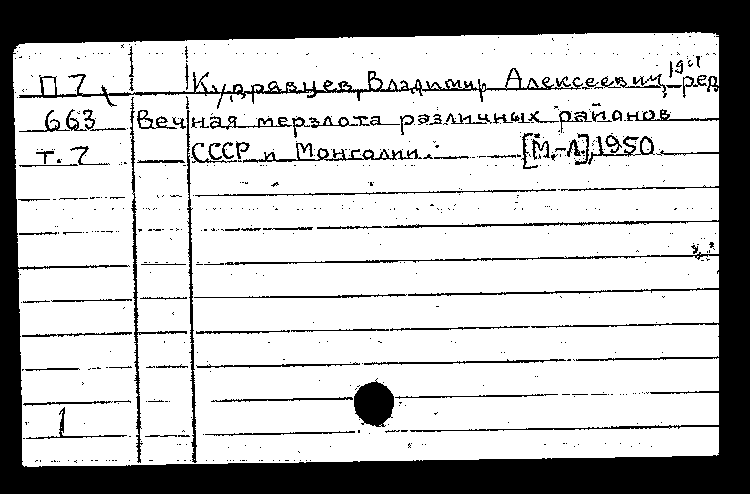 П 7 Кудрявцев, Владимир Алексеевич, ред
663 Вечная мерзлота различных районов
т. 7 СССР и Монголии. [М.-Л.], 1950.
1